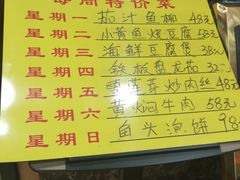 每周特价菜
星期一 茄汁鱼柳 48元
星期二 小黄鱼烧豆腐 58元
星期三 海鲜豆腐煲 38元
星期四 铁板
星期五 雪莲芽炒肉丝 48元
星期六 黄焖牛肉 58元
星期日 鱼头泡饼 98元